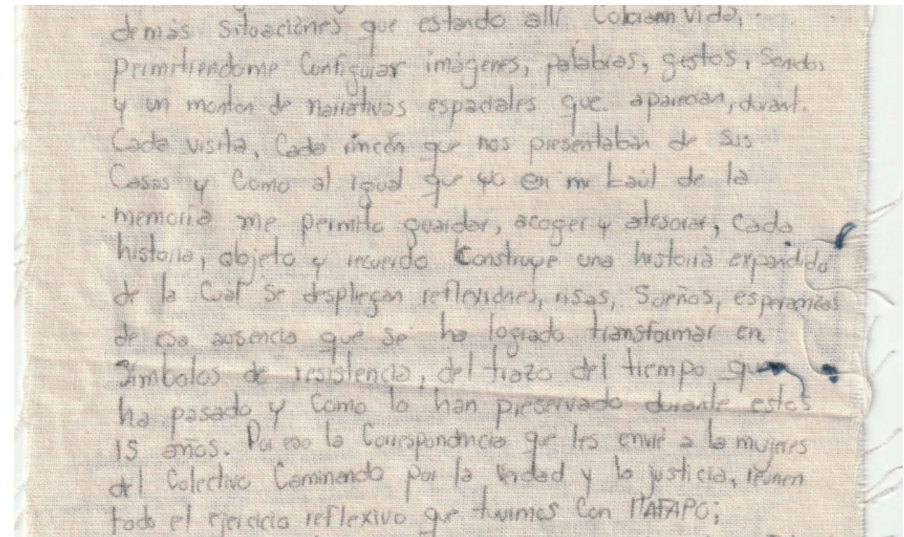 demás situaciones que estando allí Cobraron vida,
permitiendome Configurar imágenes, palabras, gestos, Sonidos
y un monton de narrativas espaciales que aparecian, durant.
Cada visita, Cada rincón que nos presentaban de sus
Casas y Como al igual que yo en mi baúl de la
memoria me permito guardar, acoger y atesorar, Cada
historia, objeto y recuerdo Construye una historia expandida
de la Cual se despliegan reflexiones, risas, Sueños, esperanzas
de esa ausencia que se ha logrado transformar en
Símbolos de resistencia, del trazo del tiempo que
ha pasado y Como lo han preservado durante estos
15 años. Por eso la Correspondencia que les envié a la mujeres
del Colectivo Caminando por la Verdad y la justicia, reunen
todo el ejercicio reflexivo que tuvimos Con MAFAPO;